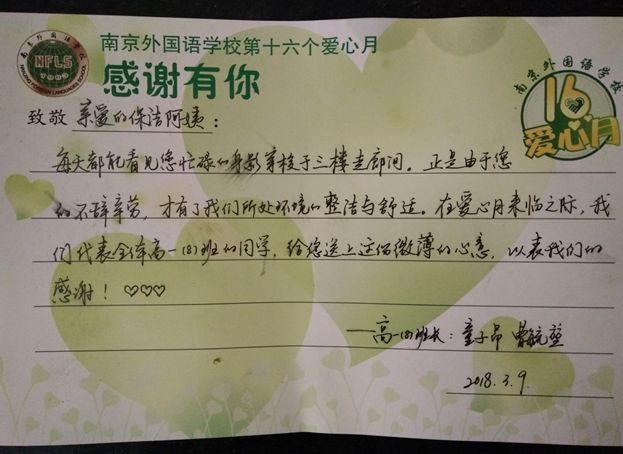 南京外国语学校
NFLS
NANJING FOREIGN LANGUAGES SCHOOL
南京外国语学校第十六个爱心月
感谢有你
南京外国语学校
16
爱心月
致敬 亲爱的保洁阿姨：
每天都能看见您忙碌的身影穿梭于三楼走廊间。正是由于您
的不辞辛劳，才有了我们所处环境的整洁与舒适。在爱心月来临之际，我
们代表全体高一(8)班的同学，给您送上这份微薄的心意，以表我们的
感谢！♡♡♡
——高一(8)班长：童子昂 曾毓堃
2018.3.9